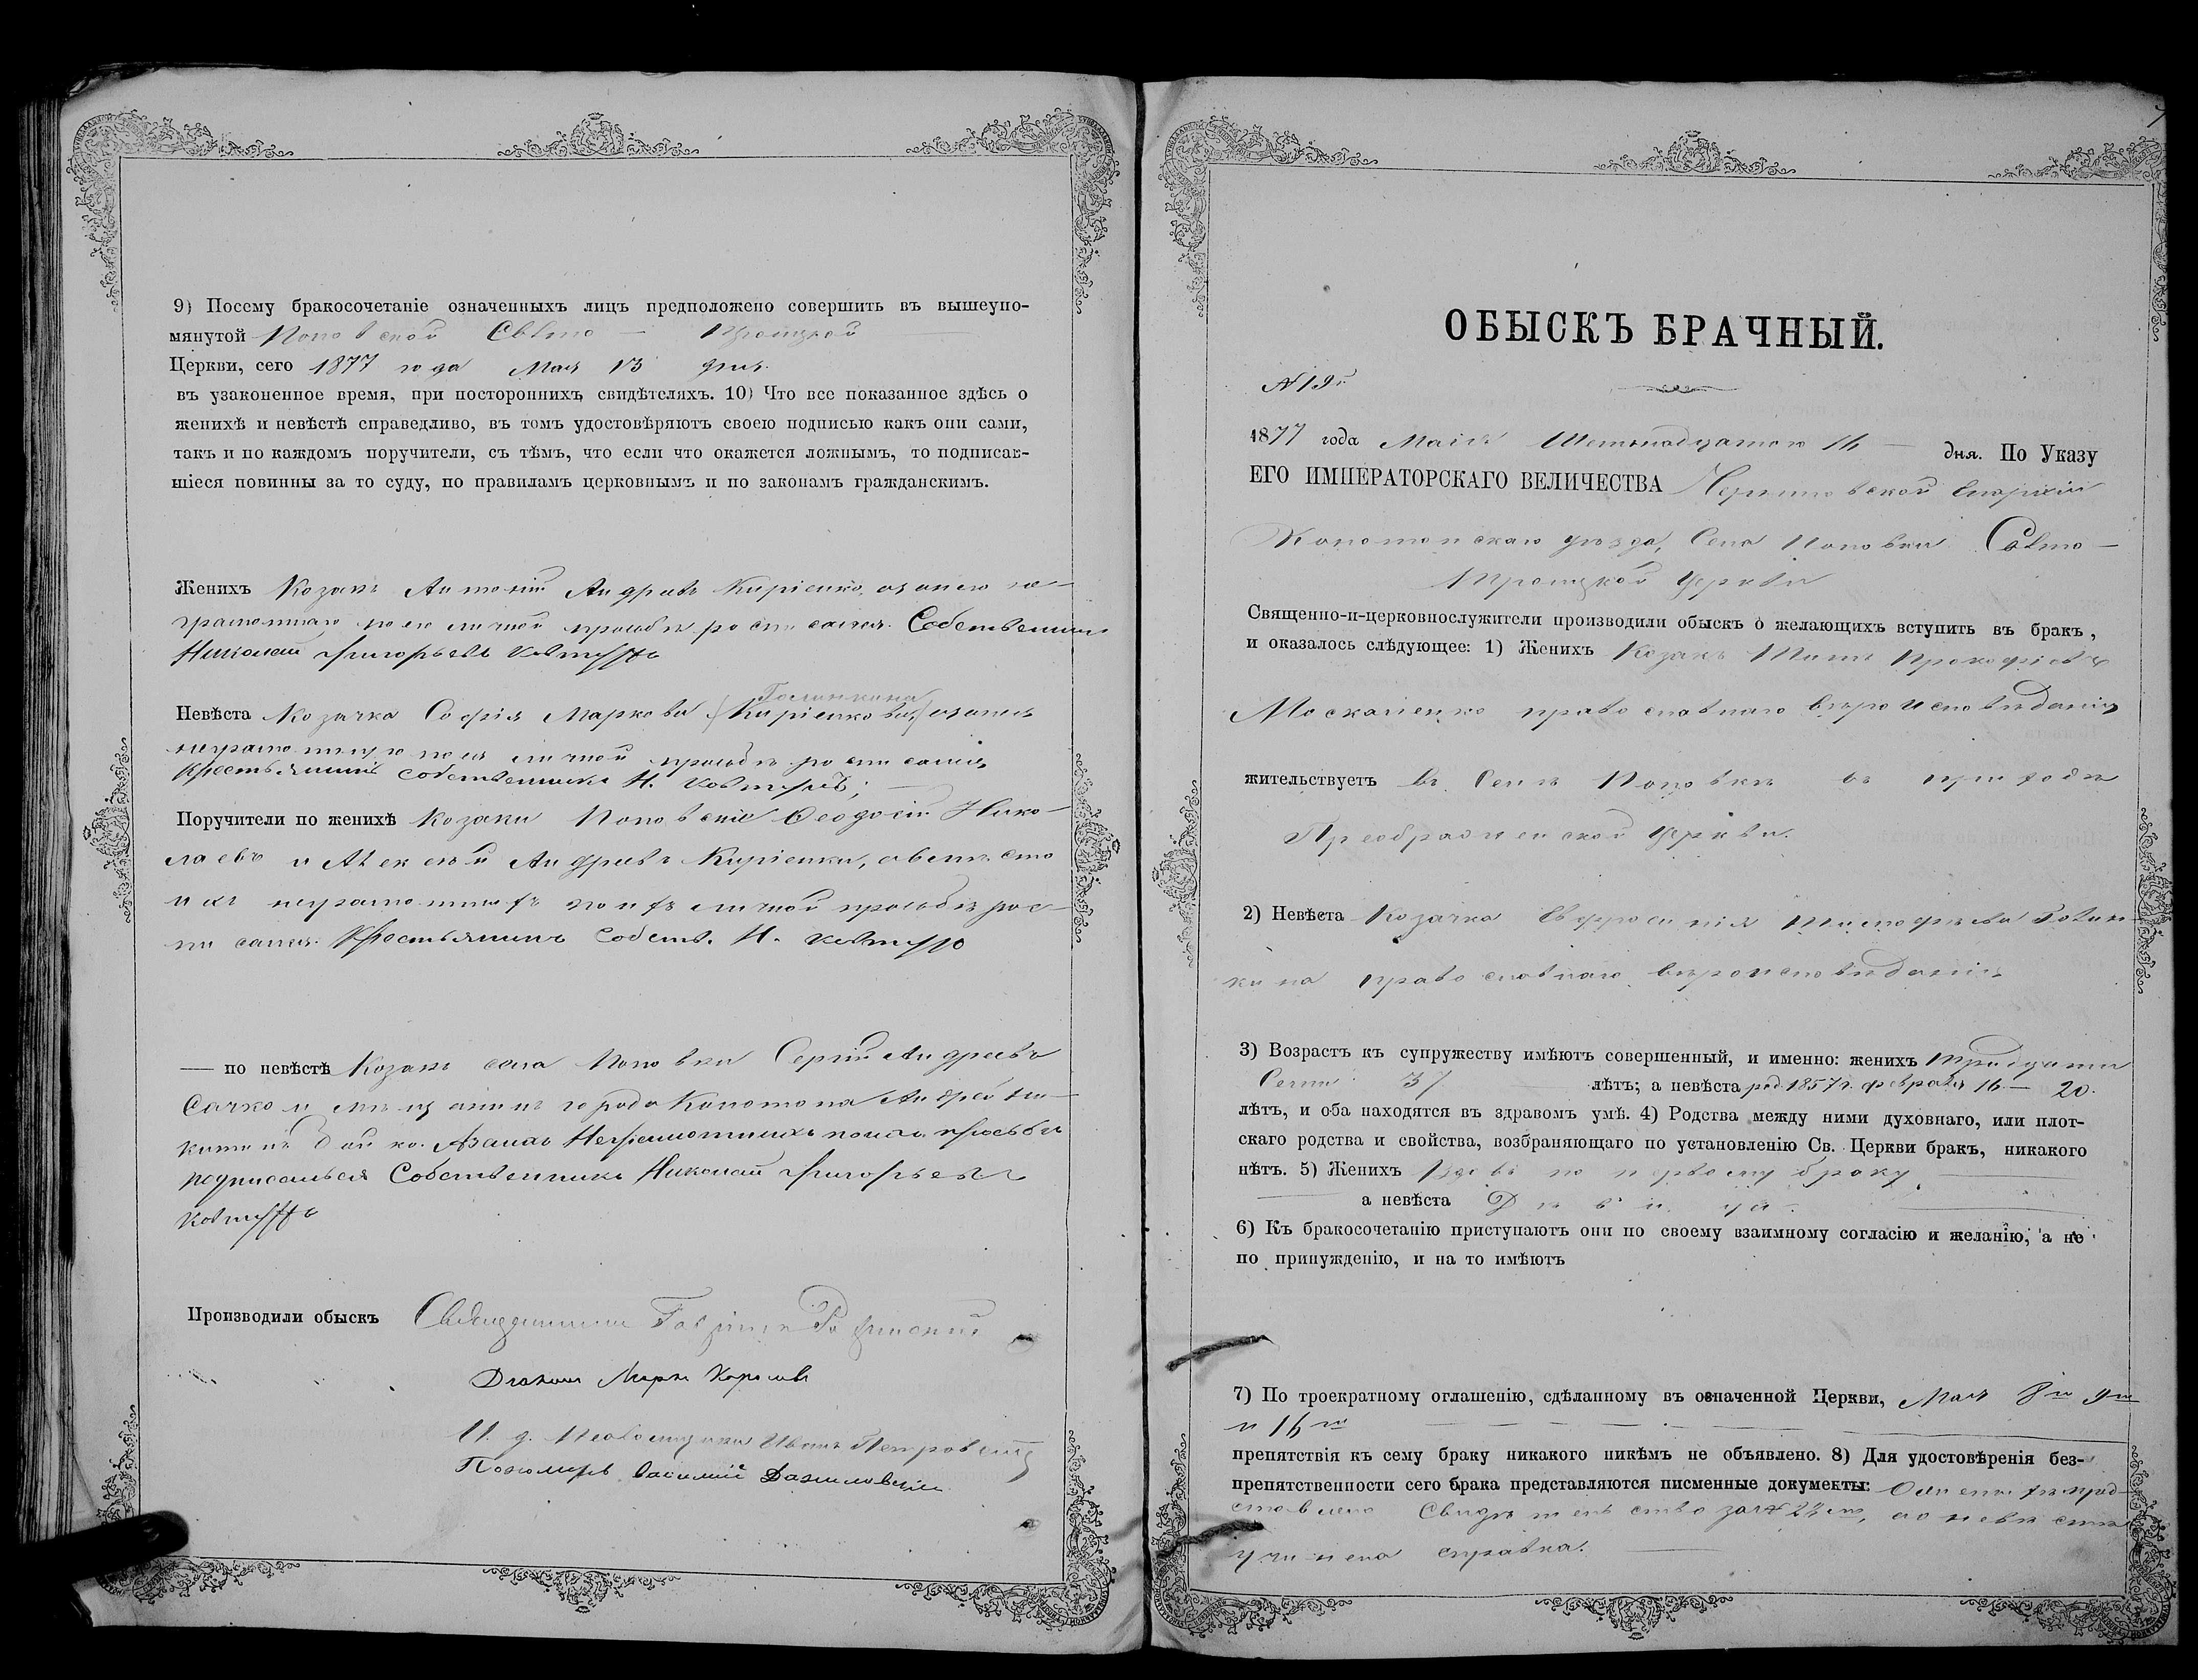 9) Посему бракосочетаніе означенныхъ лицъ предположено совершить въ вышеупо-
мянутой Поповской Свято — Троицкой
Церкви, сего 1877 года Мая 13 дня.
въ узаконенное время, при постороннихъ свидѣтеляхъ. 10) Что все показанное здѣсь о
женихѣ и невѣстѣ справедливо, въ томъ удостовѣряютъ своею подписью какъ они сами,
такъ и по каждомъ поручители, съ тѣмъ, что если что окажется ложнымъ, то подписав-
шіеся повинны за то суду, по правиламъ церковнымъ и по законамъ гражданскимъ.
Женихъ Козакъ Антоній Андреевъ Киріенко, а за него не-
грамотнаго по его личной просьбѣ росписался Собственникъ
Николай Григорьевъ Ковтуръ
Невѣста Козачка Софія Маркова (Киріенкова) Голинкина а за нея
неграмотную по ея личной просьбѣ росписался
Крестьянинъ собственникъ Н. Ковтуръ;
Поручители по женихѣ Козаки Поповскіе Феодосій Нико-
лаевъ и Алексѣй Андреевъ Киріенки, а вмѣсто
ихъ неграмотныхъ по ихъ личной просьбѣ рос-
писался Крестьянинъ Собств. Н. Ковтуръ
— по невѣстѣ Козакъ села Поповки Сергій Андреевъ
Сачко и мѣщанинъ города Конотопа Андрей Ни-
китинъ а за нихъ Неграмотныхъ по ихъ просьбѣ
подписался Собственникъ Николай Григорьевъ
Ковтуръ
Производили обыскъ Священникъ
Діаконъ Маркъ
И. д. Псаломщика Иванъ Петровскій
Пономарь Василій Даниловскій
ОБЫСКЪ БРАЧНЫЙ.
№ 19й
1877 года Маія Шетьнадцатого 16 — дня. По Указу
ЕГО ИМПЕРАТОРСКАГО ВЕЛИЧЕСТВА Черниговской Епархіи
Конотопскаго уѣзда, Села Поповки Свято —
Троицкой Церкви
Священно-и-церковнослужители производили обыскъ о желающихъ вступить въ бракъ,
и оказалось слѣдующее: 1) Женихъ Козакъ Титъ Прокофіевъ
Москаленко православнаго вѣроисповѣданія
жительствуетъ въ Селѣ Поповкѣ въ приходѣ
Преображенской Церкви.
2) Невѣста Козачка Евфросинія Тимофѣева Голин-
кина православнаго вѣроисповѣданія
3) Возрастъ къ супружеству имѣютъ совершенный, и именно: женихъ тридцати
Семи 37 лѣтъ; а невѣста род. 1857 г. февраля 16 — 20.
лѣтъ, и оба находятся въ здравомъ умѣ. 4) Родства между ними духовнаго, или плот-
скаго родства и свойства, возбраняющаго по установленію Св. Церкви бракъ, никакого
нѣтъ. 5) Женихъ Вдовъ по первому браку,
а невѣста Дѣвица.
6) Къ бракосочетанію приступаютъ они по своему взаимному согласію и желанію, а не
по принужденію, и на то имѣютъ
7) По троекратному оглашенію, сдѣланному въ означенной Церкви, Мая 8го 9го
и 16го
препятствія къ сему браку никакого никѣмъ не объявлено. 8) Для удостовѣренія без-
препятственности сего брака представляются писменные документы: О женихѣ пред-
ставлено Свидѣтельство за № 22м, а о невѣстѣ
учинена справка.